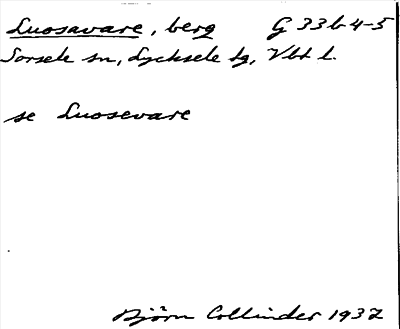 Luosavare, berg G 33b 4-5
Sorsele sn, Lycksele tg, Vbt l.
se Luosevare
Björn Collinder 1937